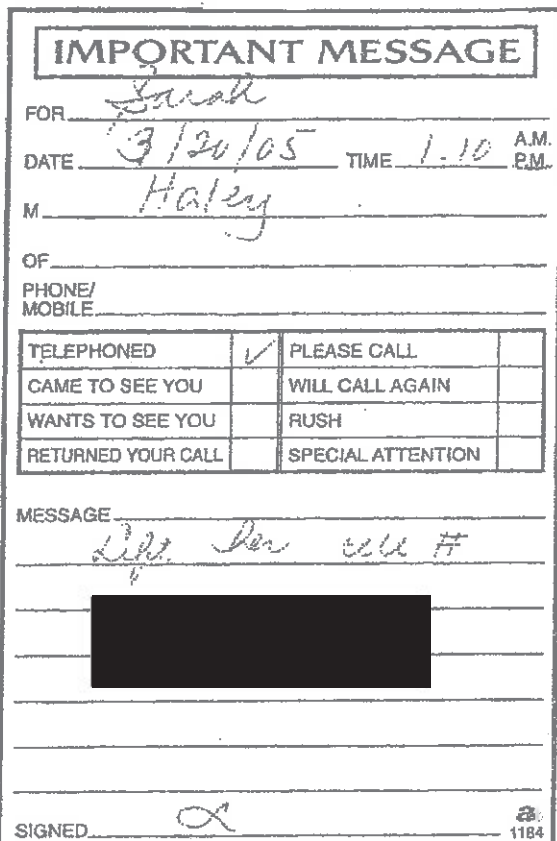 IMPORTANT MESSAGE
FOR Sarah
DATE 3/20/05 TIME 1.10 A.M.
P.M.
M Haley
OF
PHONE/
MOBILE
TELEPHONED ✓ PLEASE CALL
CAME TO SEE YOU WILL CALL AGAIN
WANTS TO SEE YOU RUSH
RETURNED YOUR CALL SPECIAL ATTENTION
MESSAGE
her cell #
SIGNED
1184